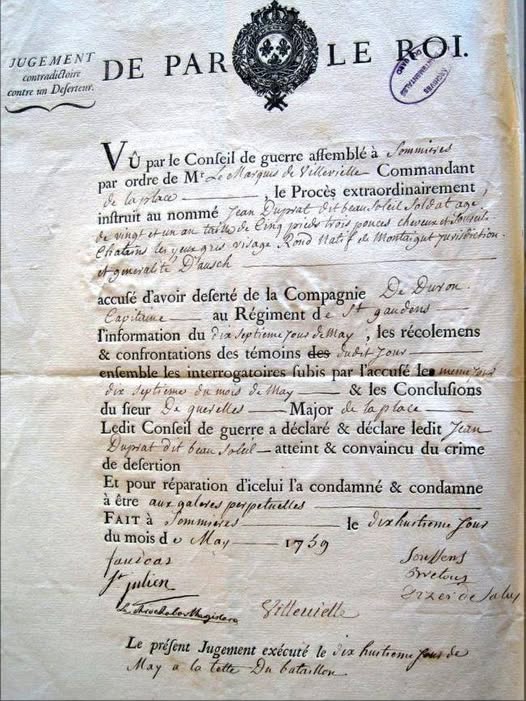 JUGEMENT
contradictoire
contre un Deserteur.
DE PAR LE ROI.
VÛ par le Conseil de guerre assemblé à Sommieres
par ordre de Mr Le Marquis de Villevielle Commandant
de la place, le Procès extraordinairement
instruit au nommé Jean Duprat dit beau Soleil Soldat age
de vingt et un an taille de Cinq pieds trois pouces cheveux et sourcils
Chatains les yeux gris visage Rond Natif de Montaigut Jurisdiction
et generalité D'ausch
accusé d'avoir deserté de la Compagnie De Duron
Capitaine au Régiment de St gaudens
l'information du dix septieme Jour de May, les récolemens
& confrontations des témoins des dudit Jour
ensemble les interrogatoires subis par l'accusé le meme Jour
dix septieme du mois de May & les Conclusions
du sieur De querelles Major de la place
Ledit Conseil de guerre a déclaré & déclare ledit Jean
Duprat dit beau Soleil atteint & convaincu du crime
de desertion
Et pour réparation d'icelui l'a condamné & condamne
à être aux galeres perpetuelles
FAIT à Sommieres le dix huitieme Jour
du mois de May 1759
faudoas
St julien
Villevielle
Le présent Jugement exécuté le dix huitieme Jour de
May a la tette Du bataillon